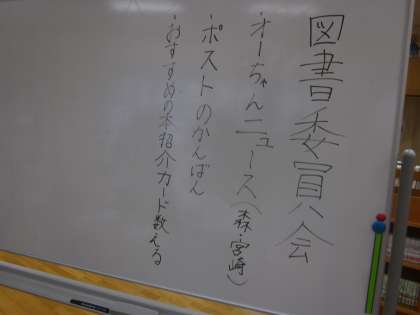 図書委員会
・オーちゃんニュース(森・宮崎)
・ポストのかんばん
・おすすめの本紹介カード数える